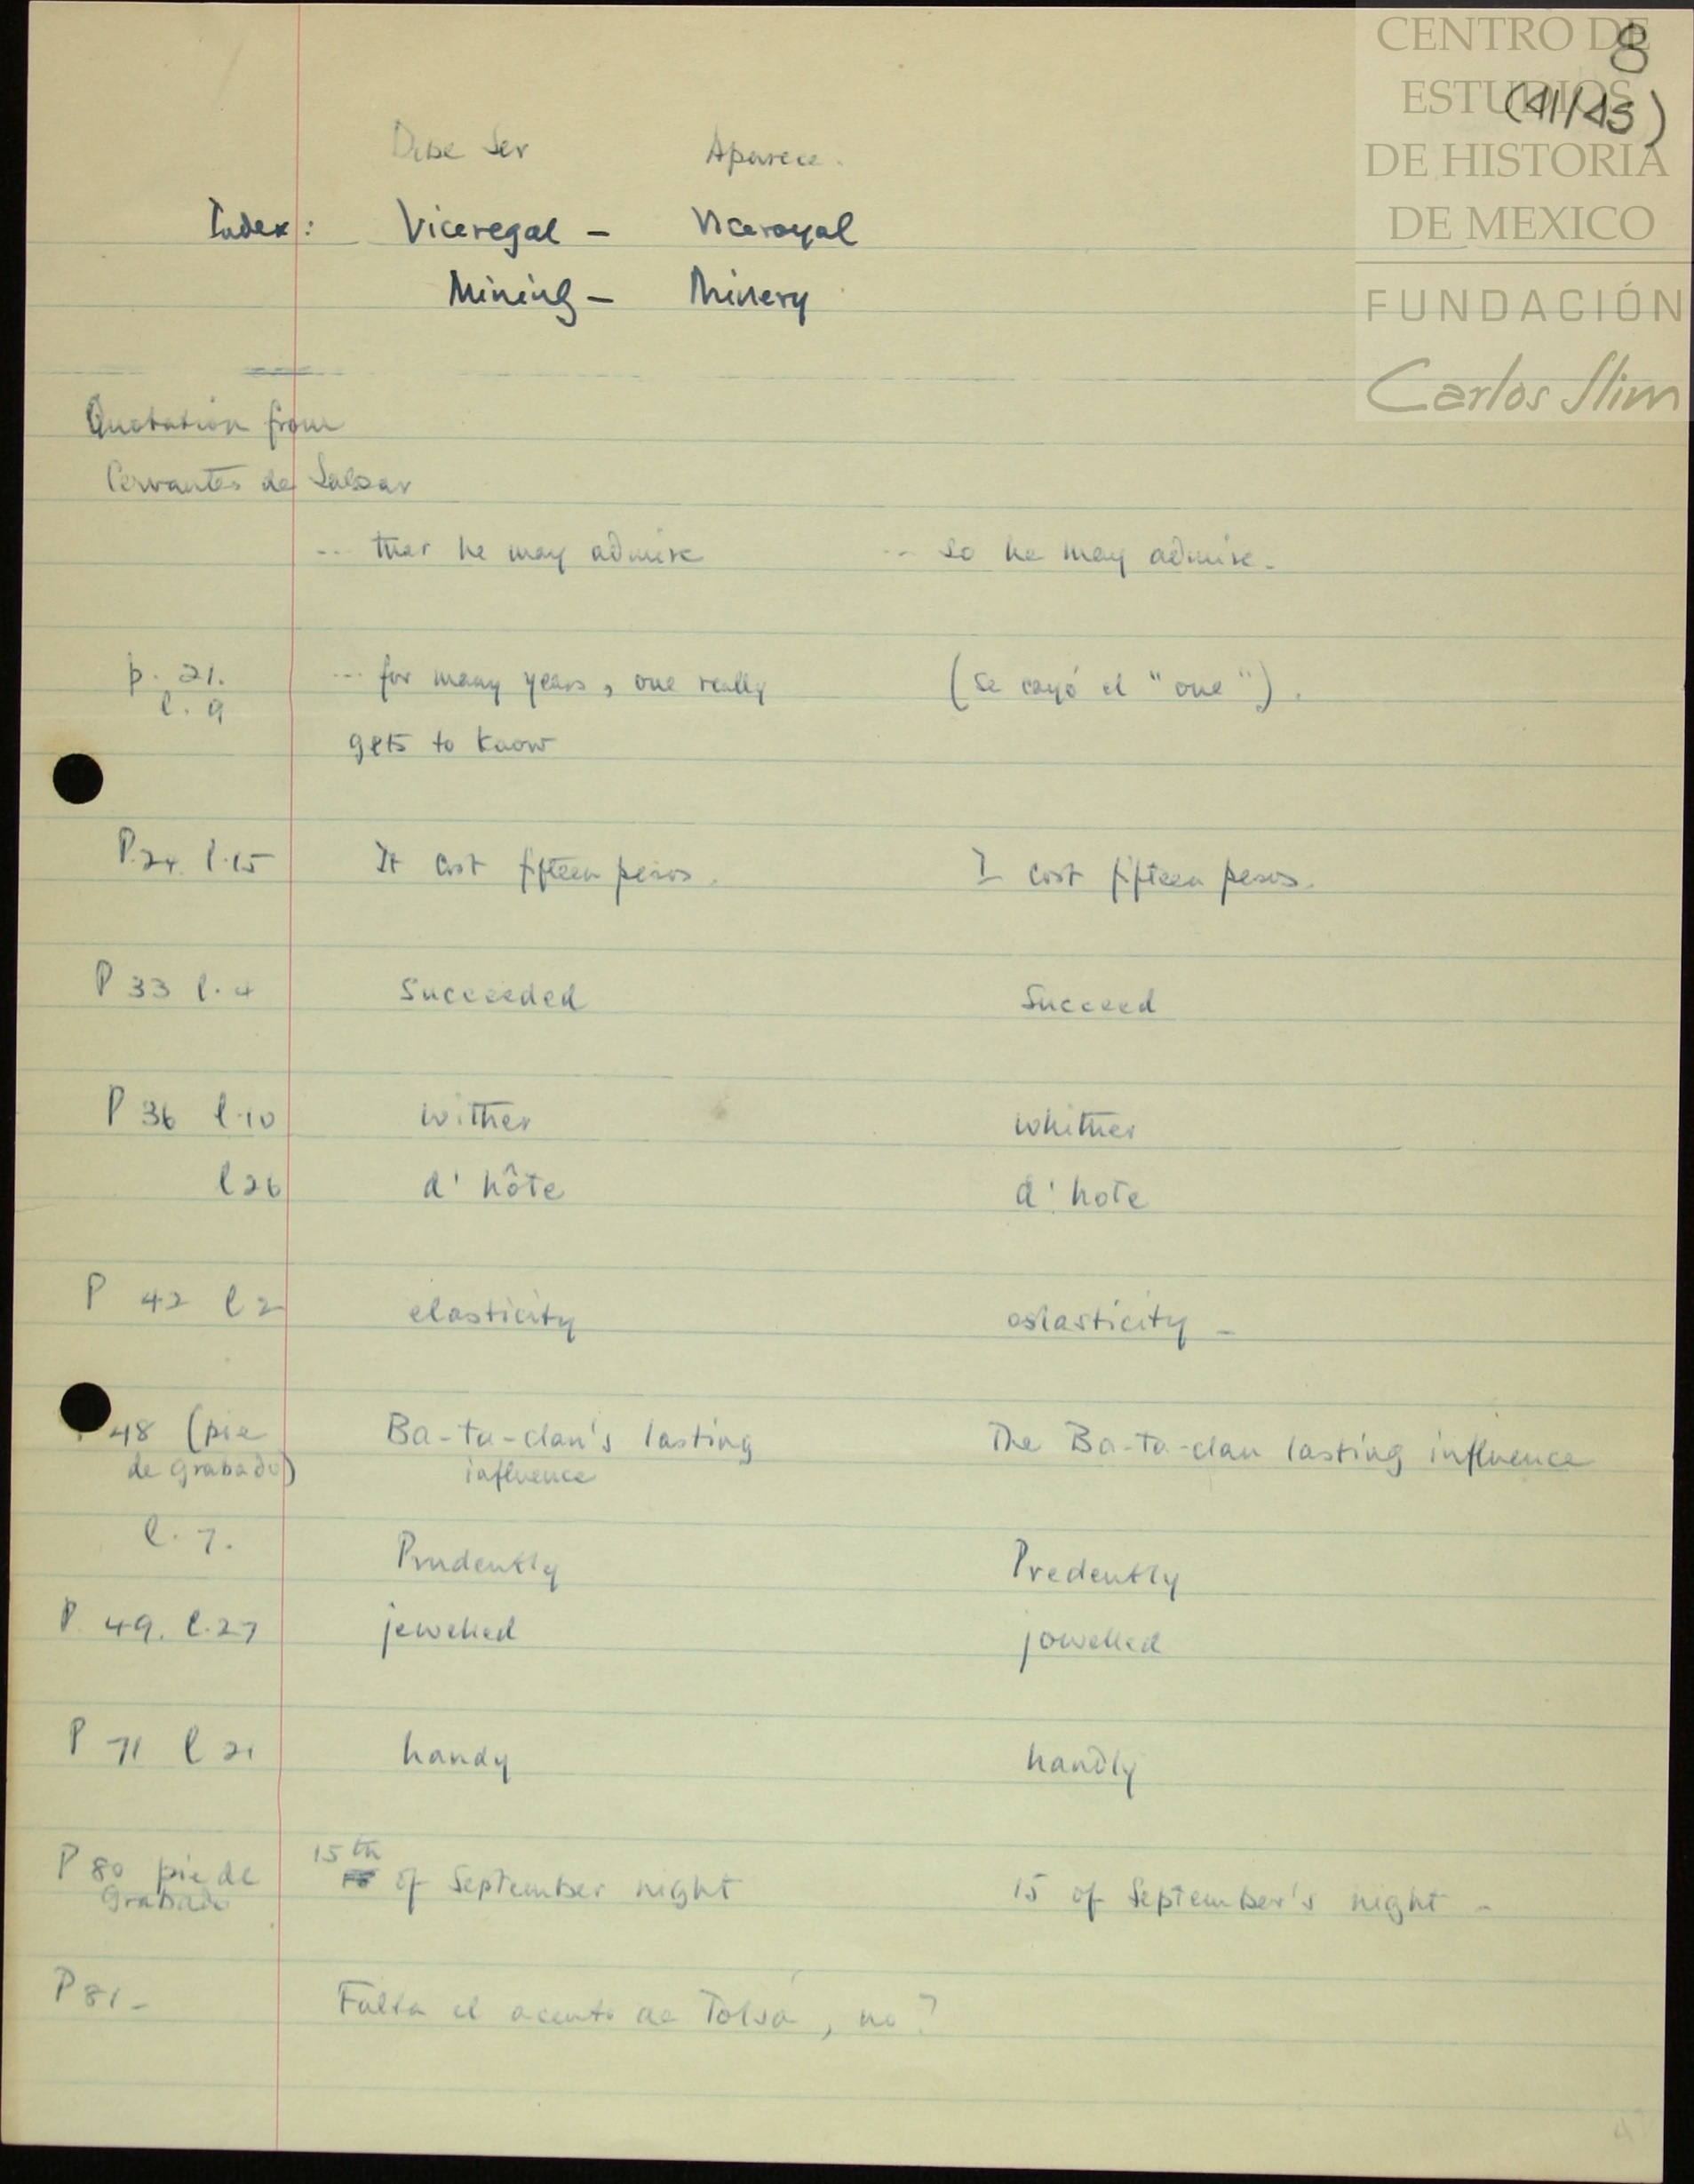 CENTRO DE
ESTUDIOS
DE HISTORIA
DE MEXICO
FUNDACIÓN
Carlos Slim
8
(41/45)
Debe Ser Aparece.
Index: Viceregal - Viceroyal
Mining - Minery
Quotation from
Cervantes de Salazar
... that he may admire ... so he may admire.
p. 21. ... for many years, one really (se cayó el "one").
l. 9
gets to know
P.24 l.15 It cost fifteen pesos. I cost fifteen pesos.
P 33 l.4 Succeeded Succeed
P 36 l.10 wither whither
l 26 d' hôte d' hote
P 42 l 2 elasticity oslasticity -
P 48 (pie Ba-ta-clan's lasting The Ba-ta-clan lasting influence
de grabado) influence
l. 7. Prudently Predently
P. 49. l.27 jewelled jowelled
P 71 l 21 handy handly
P 80 pie de 15th of September night 15 of September's night -
Grabado
P 81- Falta el acento de Tolsá, no?